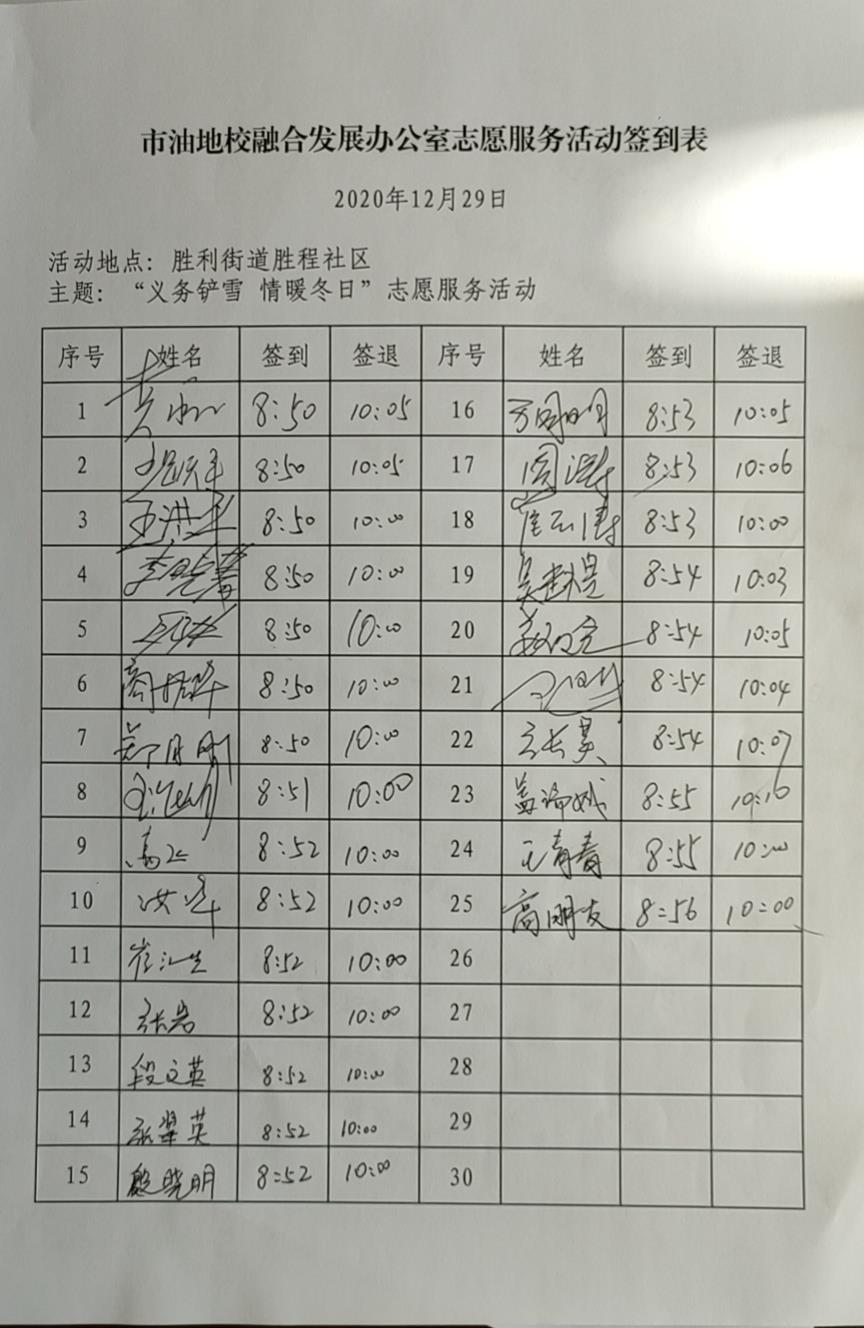 市油地校融合发展办公室志愿服务活动签到表
2020年12月29日
活动地点：胜利街道胜程社区
主题：“义务铲雪 情暖冬日”志愿服务活动
序号 姓名 签到 签退 序号 姓名 签到 签退
1 8:50 10:05 16 8:53 10:05
2 8:50 10:05 17 8:53 10:06
3 8:50 10:00 18 8:53 10:00
4 8:50 10:00 19 8:54 10:03
5 8:50 10:00 20 8:54 10:05
6 8:50 10:00 21 8:54 10:04
7 8:50 10:00 22 8:54 10:07
8 8:51 10:00 23 8:55 10:10
9 8:52 10:00 24 王青春 8:55 10:00
10 8:52 10:00 25 高朋友 8:56 10:00
11 8:52 10:00 26
12 张岩 8:52 10:00 27
13 段文英 8:52 10:00 28
14 张翠英 8:52 10:00 29
15 殷晓明 8:52 10:00 30